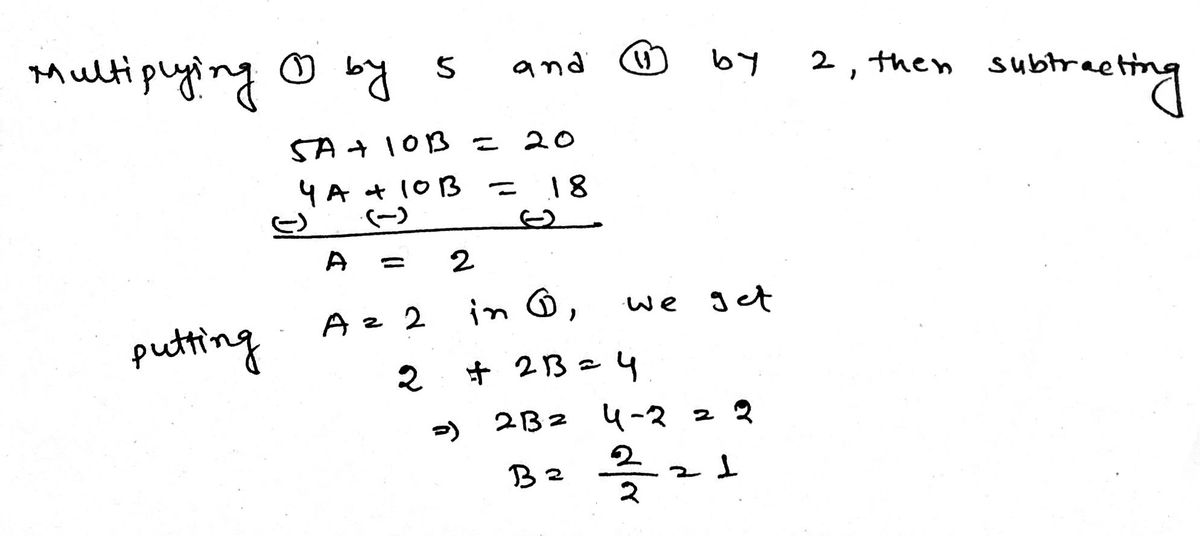 Multiplying ① by 5 and ② by 2, then subtracting
5A + 10B = 20
4A + 10B = 18
(-) (-) (-)
A = 2
putting A = 2 in ①, we get
2 + 2B = 4
⇒ 2B = 4-2 = 2
B = 2/2 = 1